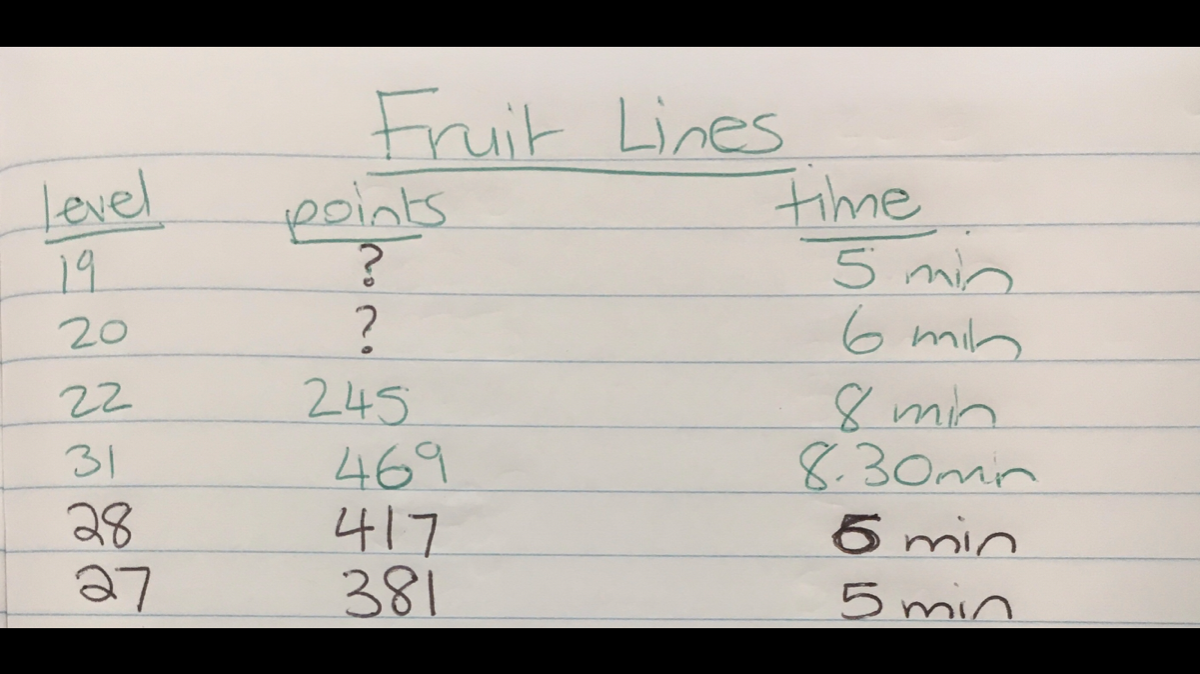 Fruit Lines
level points time
19 ? 5 min
20 ? 6 min
22 245 8 min
31 469 8.30min
28 417 min
27 381 5 min